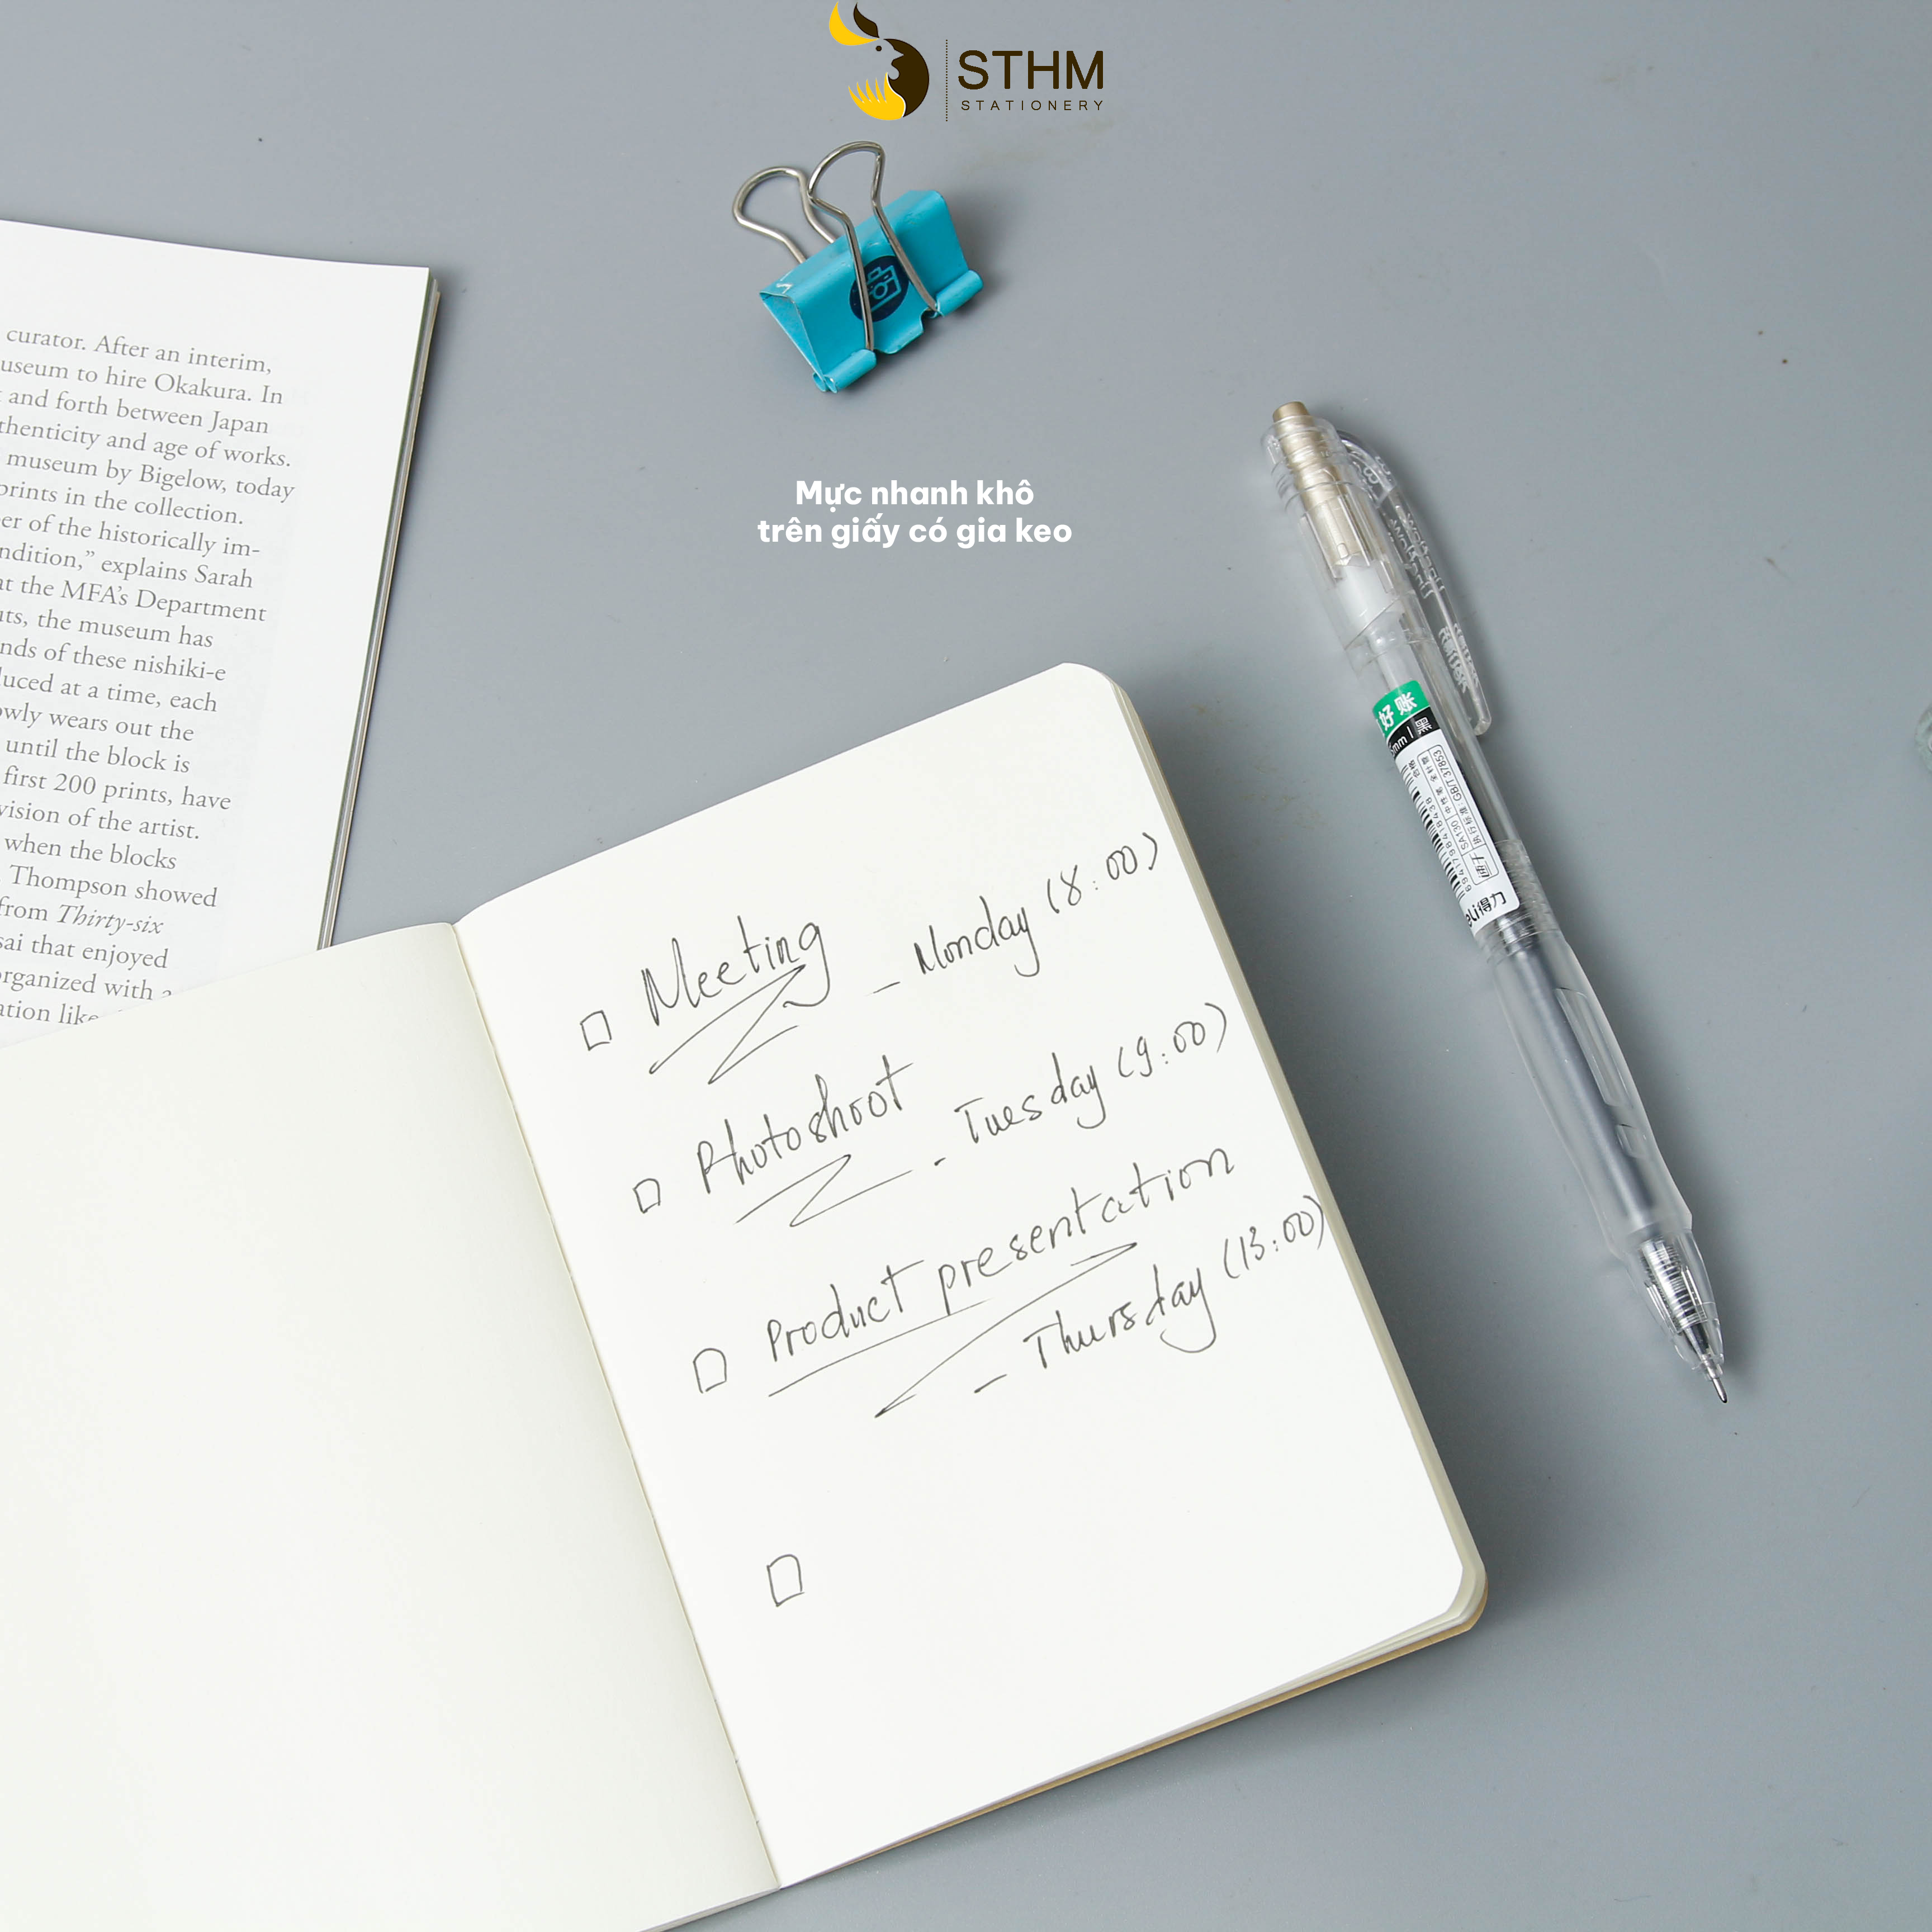 STHM
STATIONERY
Mực nhanh khô
trên giấy có gia keo
curator. After an interim,
to hire Okakura. In
and forth between Japan
and age of works.
museum by Bigelow, today
prints in the collection.
of the historically im-
explains Sarah
the MFA's Department
the museum has
of these nishiki-e
at a time, each
wears out the
until the block is
first 200 prints, have
of the artist.
when the blocks
Thompson showed
from Thirty-six
that enjoyed
with a
like
Meeting
– Monday (8:00)
Photoshoot
- Tuesday (9:00)
Product presentation
– Thursday (13:00)
好账
mm | 黑
SA130 中性笔
执行标准: GB/T 37853
6941798418436
得力